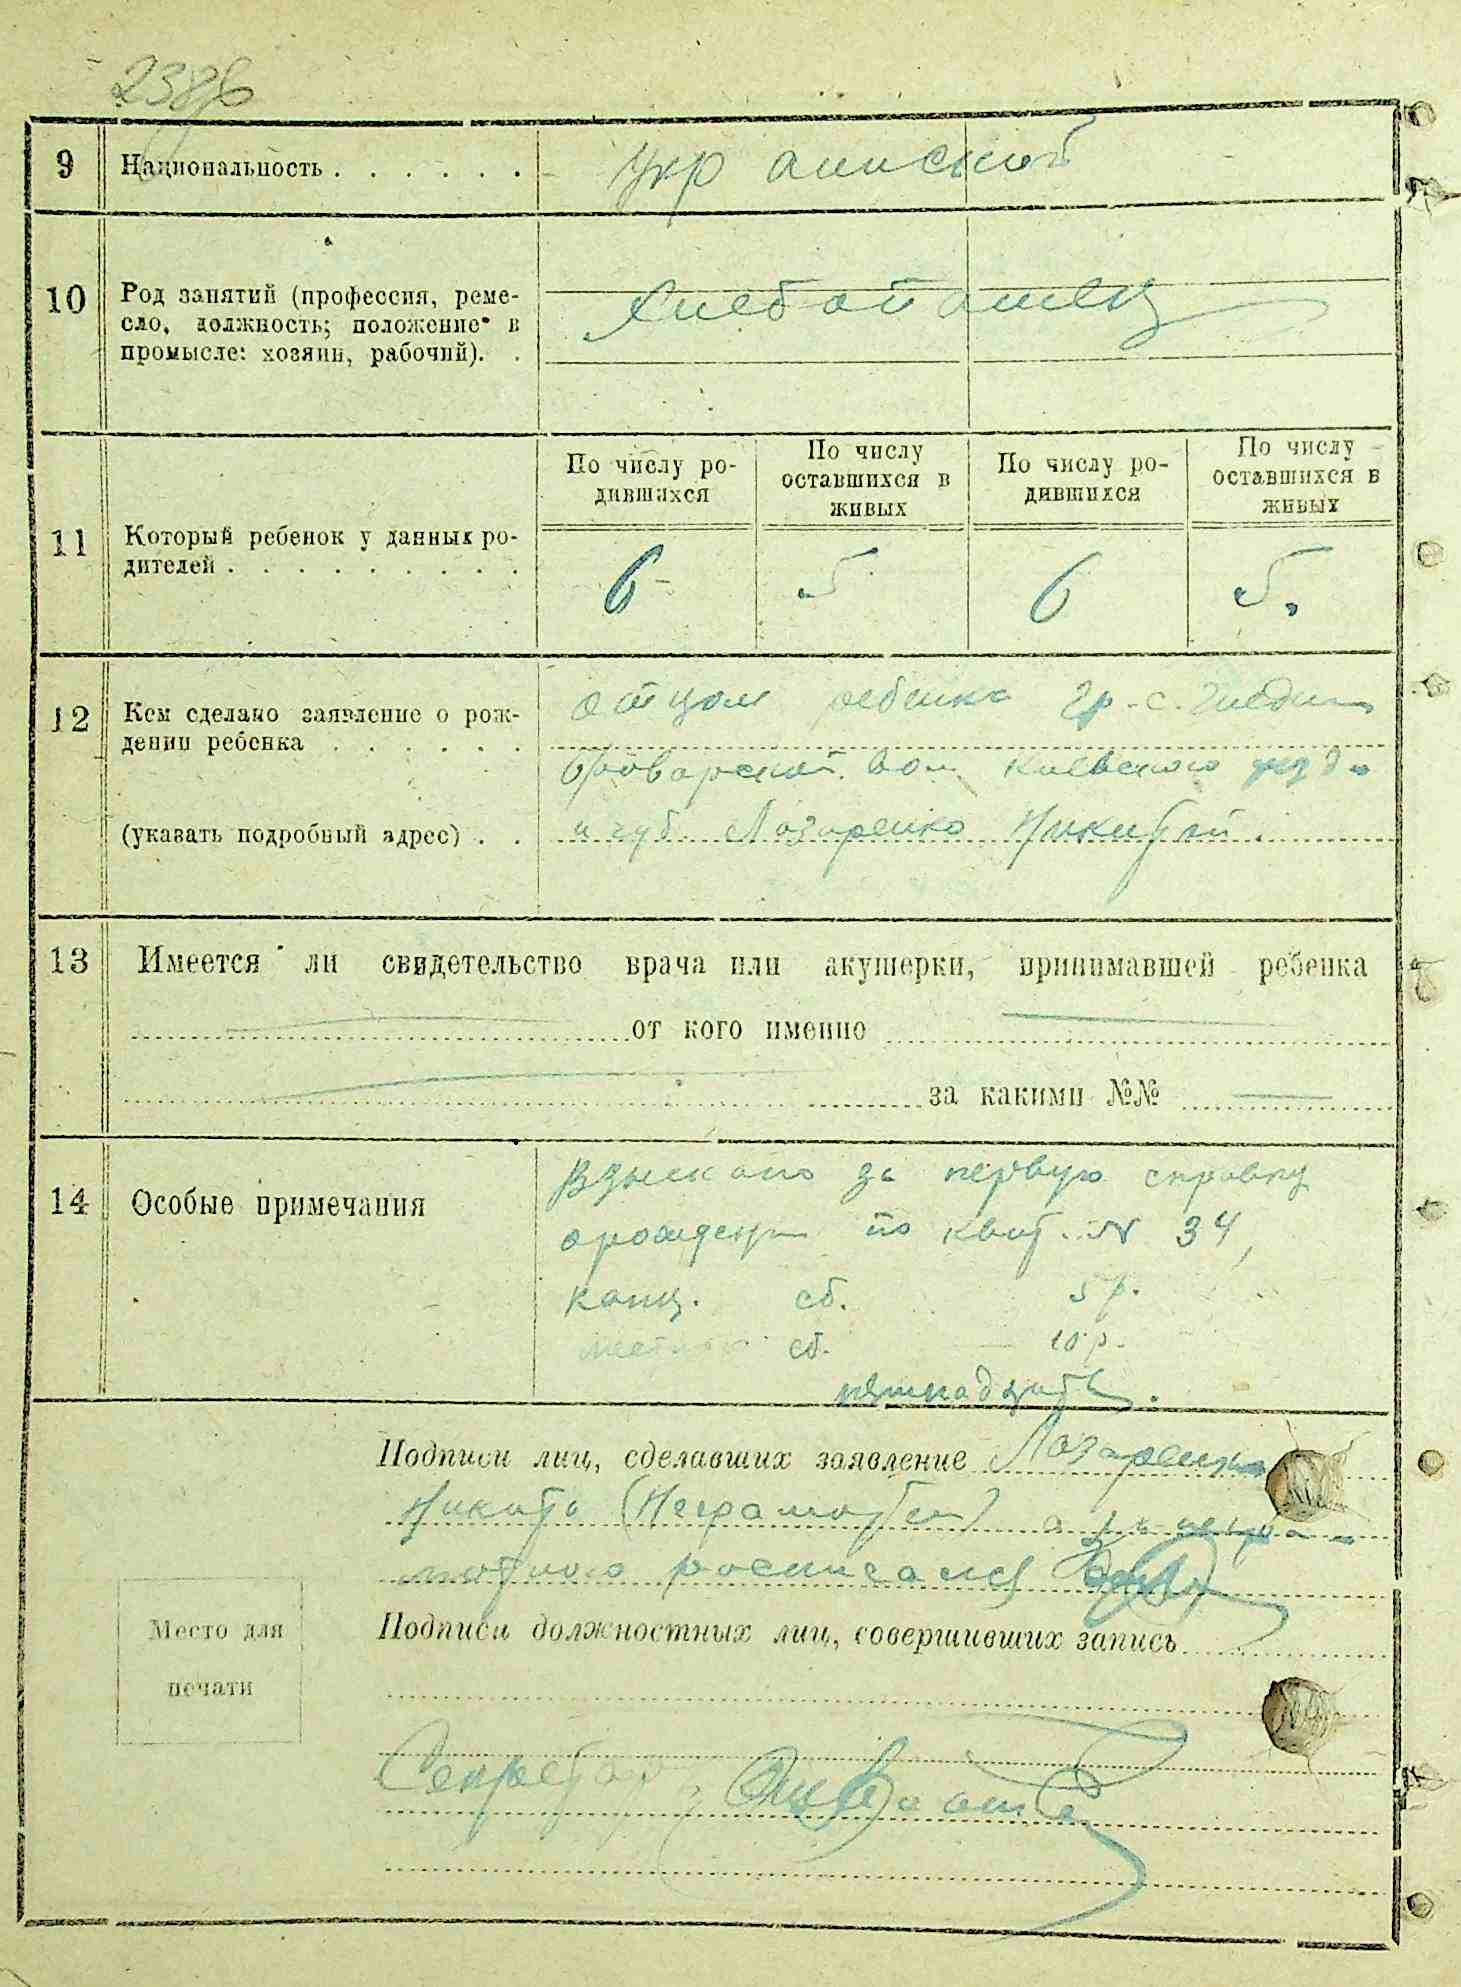 9 Национальность . . . . . . Украинской
10 Род занятий (профессия, реме-
сло, должность; положение в
промысле: хозяин, рабочий). . Хлебопашец
По числу ро-
дившихся
По числу
оставшихся в
живых
По числу ро-
дившихся
По числу
оставшихся в
живых
11 Который ребенок у данных ро-
дителей . . . . . . . . . 6 5 6 5.
12 Кем сделано заявление о рож-
дении ребенка . . . . . .
(указать подробный адрес) . .
отцом ребенка гр. с. Гнедин
Броварской вол. Киевского уезда
и губ. Лазаренко Никитой.
13 Имеется ли свидетельство врача или акушерки, принимавшей ребенка
от кого именно
за какими №№
14 Особые примечания
Взыскано за первую справку
о рождении по квит. № 34,
канц. сб. 5 р.
местн. сб. 10 р.
пятнадцать.
Подписи лиц, сделавших заявление Лазаренко
Никита (Неграмотен) а за негра-
мотного росписался
Подписи должностных лиц, совершивших запись
Место для
печати
Секретарь